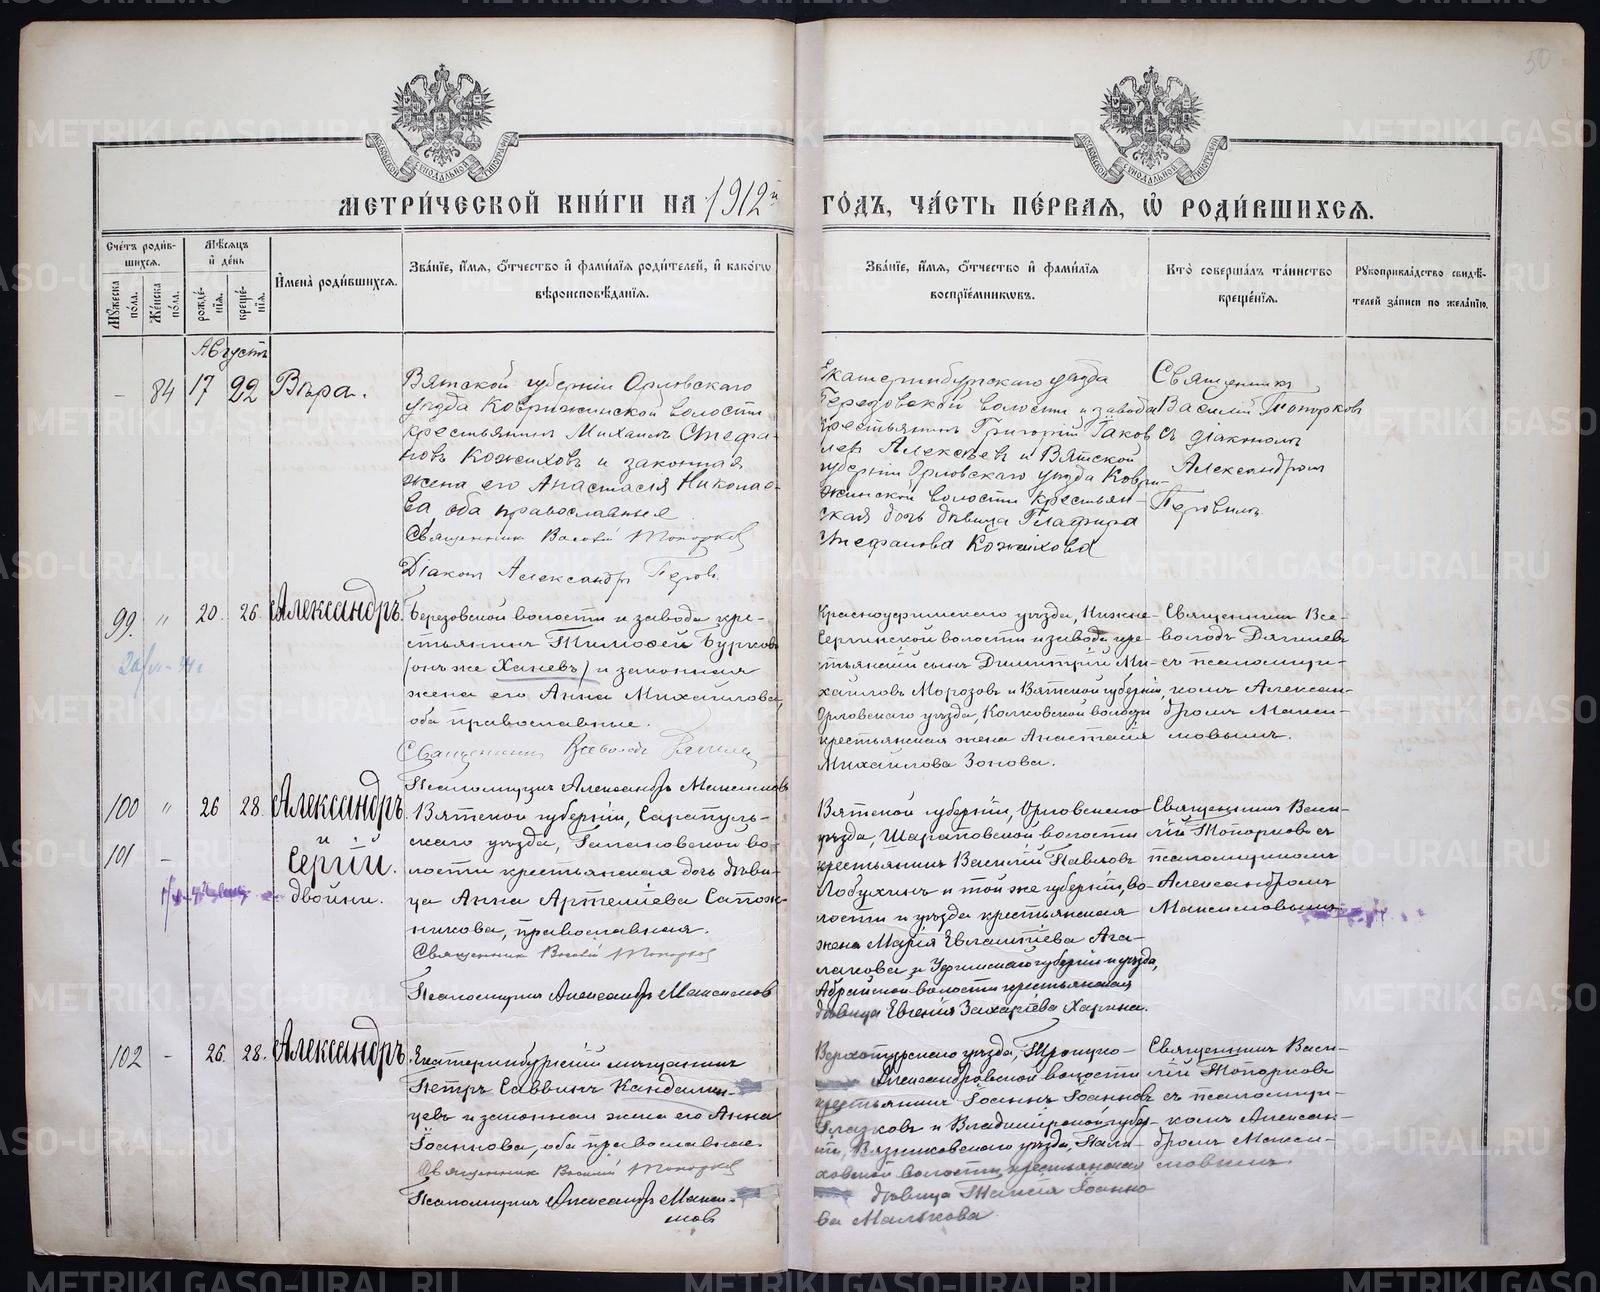 50
МОСКОВСКОЙ СИНОДАЛЬНОЙ ТИПОГРАФІИ
МОСКОВСКОЙ СИНОДАЛЬНОЙ ТИПОГРАФІИ
МЕТРИ́ЧЕСКОЙ КНИ́ГИ НА 1912й
ГО́ДЪ, ЧА́СТЬ ПЕ́РВАЯ, Ѽ РОДИ́ВШИХСЯ.
Сче́тъ роди́в-
шихся.
Му́жеска по́ла.
Же́нска по́ла.
Мѣ́сяцъ
и҆ де́нь
рожде́-
нїя.
креще́-
нїя.
И҆мена̀ роди́вшихся.
Зва́нїе, и҆́мя, ѻ҆́тчество и҆ фами́лїя роди́телей, и҆ како́гѡ
вѣроисповѣ́данїя.
Зва́нїе, и҆́мя, ѻ҆́тчество и҆ фами́лїя
воспрїе́мниковъ.
Кто̀ соверша́лъ та́инство
креще́нїя.
Рукоприкла́дство свидѣ́-
телей за́писи по жела́нїю.
Августъ
- 84 17 22 Вѣра.
Вятской губерніи Орловскаго
уѣзда Коврижинской волости
крестьянинъ Михаилъ Стефа-
новъ Кожиховъ и законная
жена его Анастасія Николае-
ва оба православные
Священникъ Василій Топорковъ
Діаконъ Александръ Перовъ
Екатеринбургскаго уѣзда
Березовской волости и завода
крестьянинъ Григорій Іаков
левъ Алексѣевъ и Вятской
губерніи Орловскаго уѣзда Коври-
жинской волости крестьян-
ская дочь дѣвица Глафира
Стефанова Кожихова
Священникъ
Василій Топорковъ
съ діакономъ
Александромъ
Перовымъ
99. " 20 26 Александръ.
Березовской волости и завода кре-
стьянинъ Тимоѳей Бурковъ
(онъ же Ханевъ) и законная
жена его Анна Михайлова,
оба православные.
Священникъ Всеволодъ
Псаломщикъ Александръ Максимовъ
Красноуфимскаго уѣзда, Нижне-
Сергинской волости и завода кре-
стьянскій сынъ Димитрій Ми-
хаиловъ Морозовъ и Вятской губерніи,
Орловскаго уѣзда, Колковской волости
крестьянская жена Анастасія
Михаилова Зонова.
Священникъ Все-
володъ Дягилевъ
съ псаломщи-
комъ Алексан-
дромъ Макси-
мовымъ.
100 " 26 28. Александръ
101 -
и
Сергій.
двойни.
Вятской губерніи, Сарапуль-
скаго уѣзда, Галановской во-
лости крестьянская дочь дѣви-
ца Анна Артеміева Сапож-
никова, православная.
Священникъ Василій Топорковъ
Псаломщикъ Александръ Максимовъ
Вятской губерніи, Орловскаго
уѣзда, Шараповской волости
крестьянинъ Василій Павловъ
Лобухинъ и той же губерніи, во-
лости и уѣзда крестьянская
жена Марія Евлампіева Ага-
лакова и Уфимской губерніи и уѣзда,
волости крестьянская
дѣвица Евгенія Захаріева Харина.
Священникъ Васи-
лій Топорковъ съ
псаломщикомъ
Александромъ
Максимовымъ
102 - 26. 28. Александръ.
Екатеринбургскій мѣщанинъ
Петръ Саввинъ Кандалин-
цевъ и законная жена его Анна
Іоаннова, оба православные.
Священникъ Василій Топорковъ
Псаломщикъ Александръ Макси-
мовъ
Верхотурскаго уѣзда, Троицко-
Александровской волости
крестьянинъ Іоаннъ Іоанновъ
Глазковъ и Владимірской губер-
ніи, Вязниковскаго уѣзда, Пали-
ховской волости, крестьянская
дѣвица Таисія Іоанно
ва Малькова
Священникъ Васи-
лій Топорковъ
съ псаломщи-
комъ Алексан-
дромъ Макси-
мовымъ
METRIKI.GASO-URAL.RU